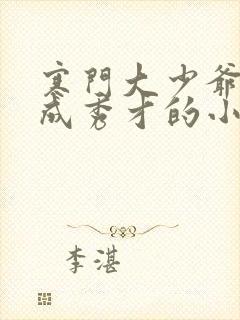 寒門大少爺
成秀才的小
李湛